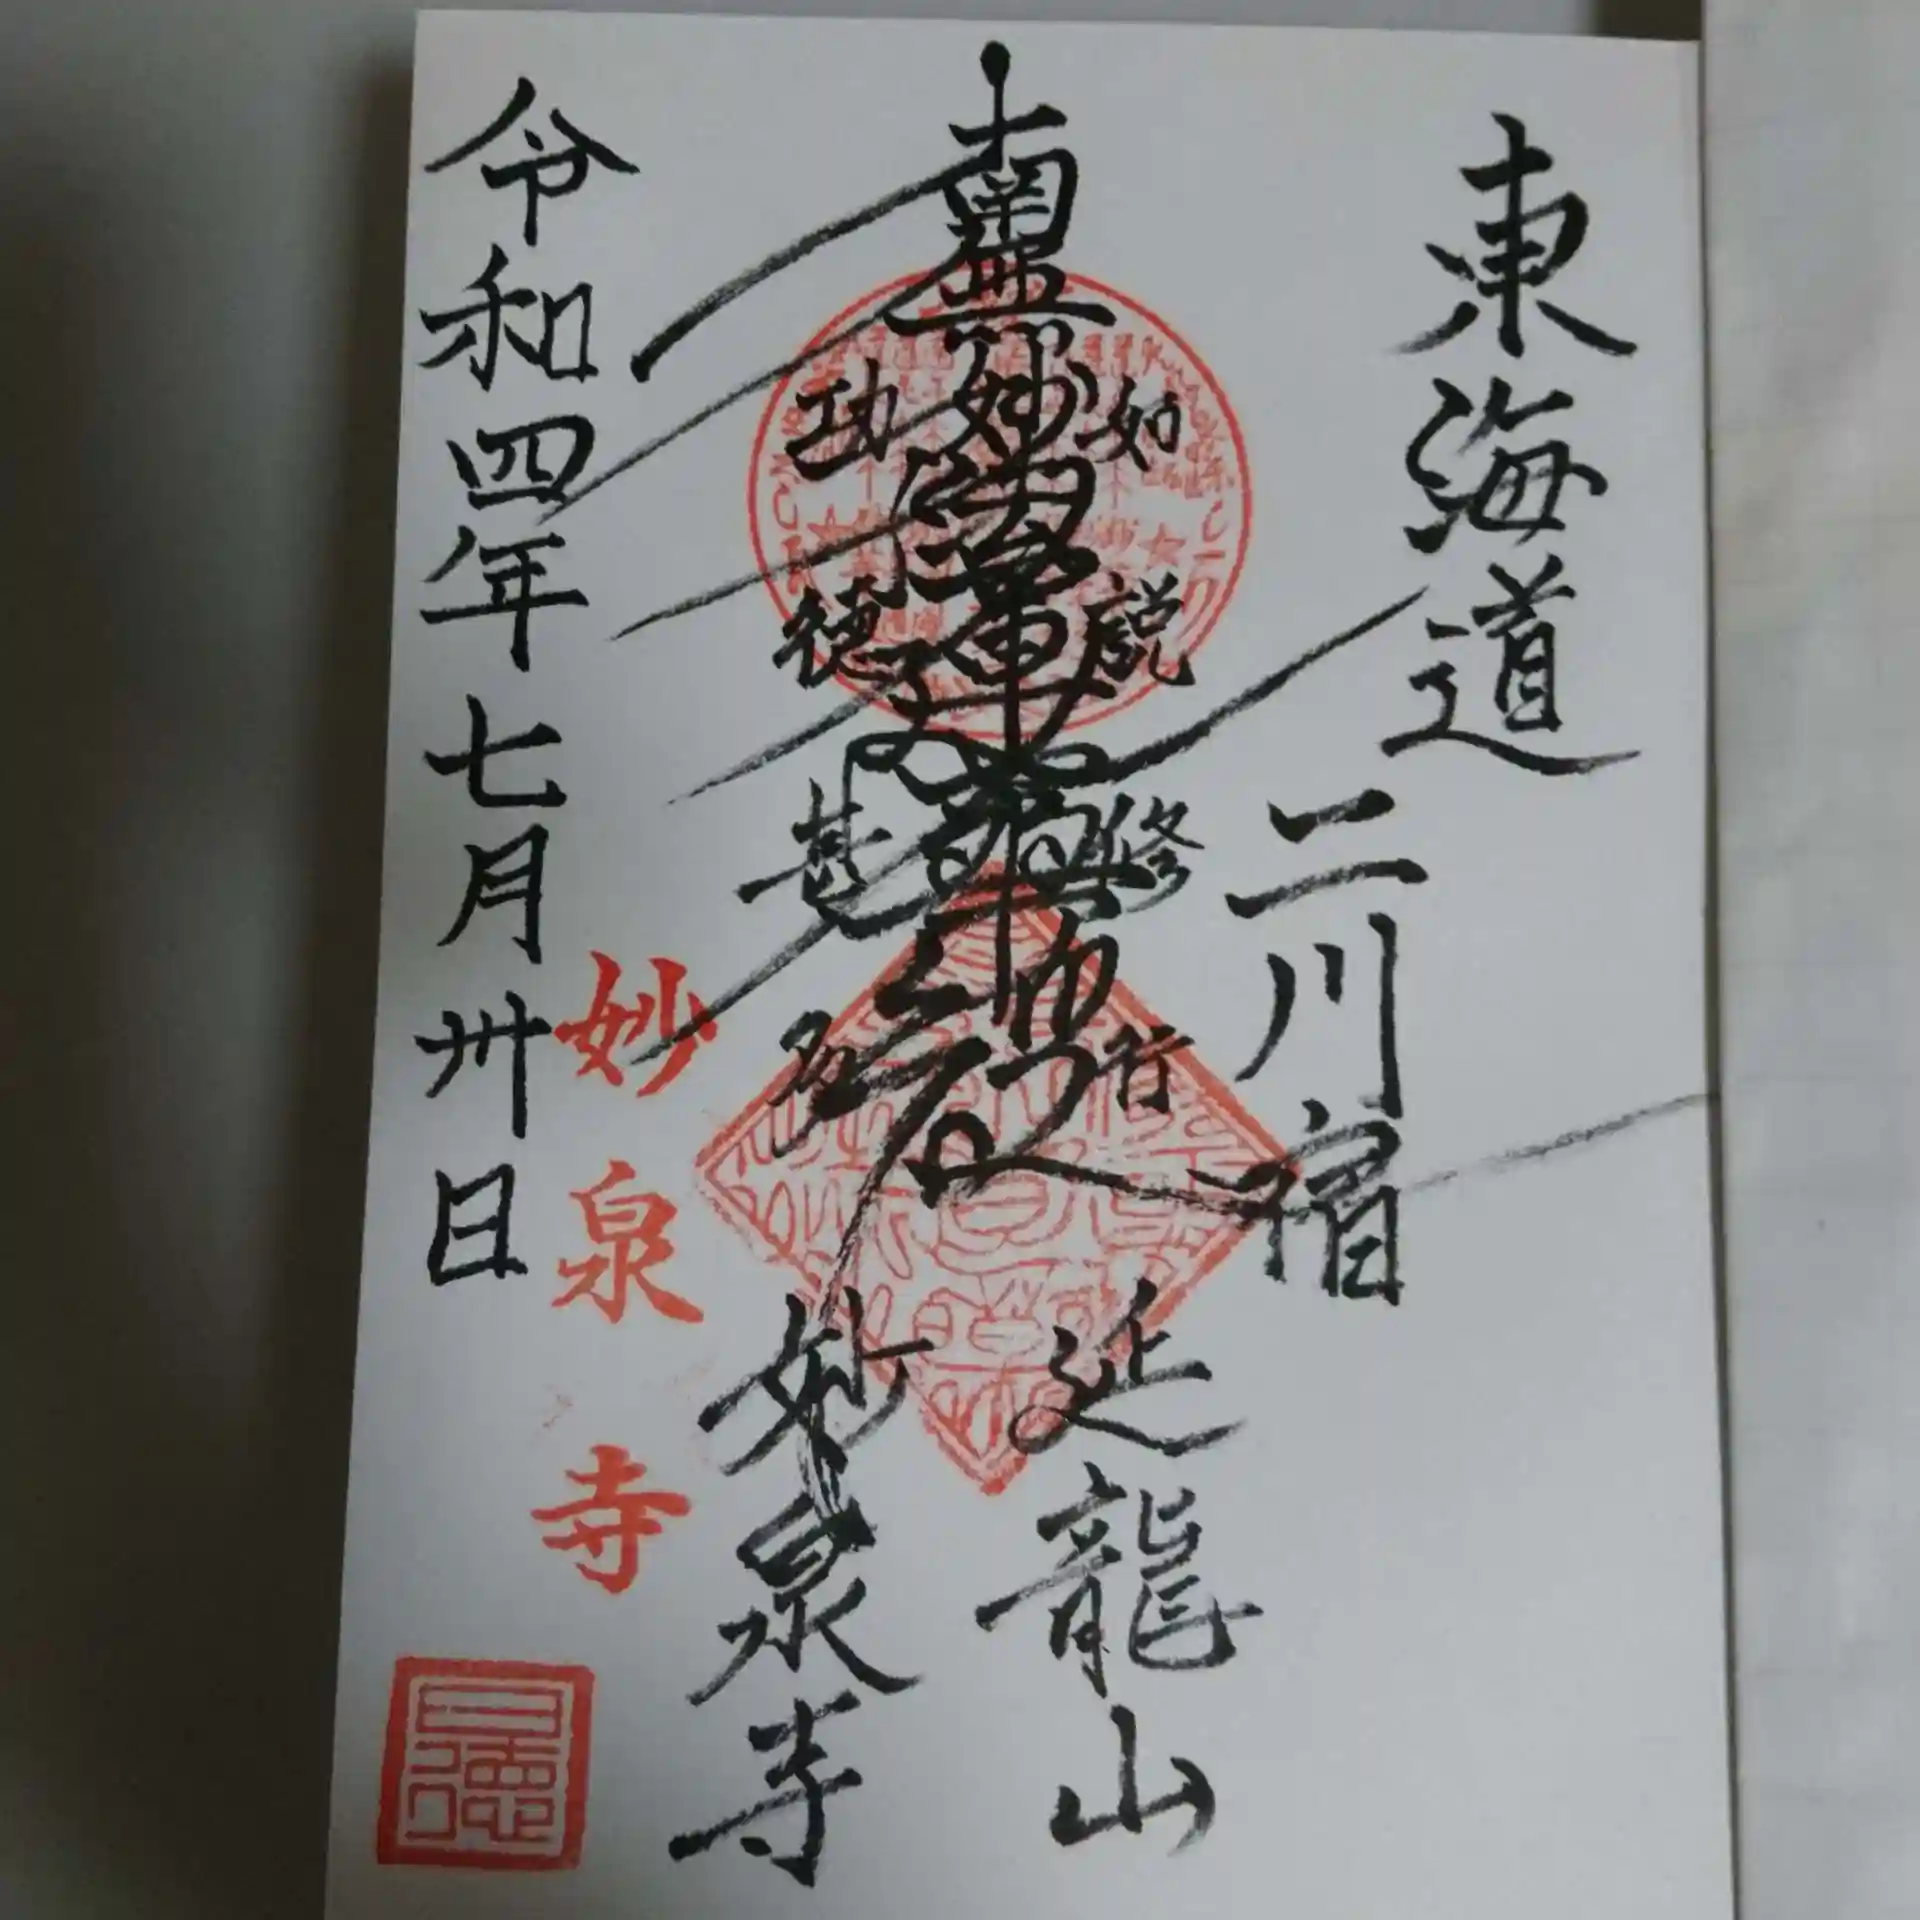 東海道
二川宿
如説修行
南無妙法蓮華経
功徳甚多
延龍山
妙泉寺
妙泉寺
令和四年七月卅日